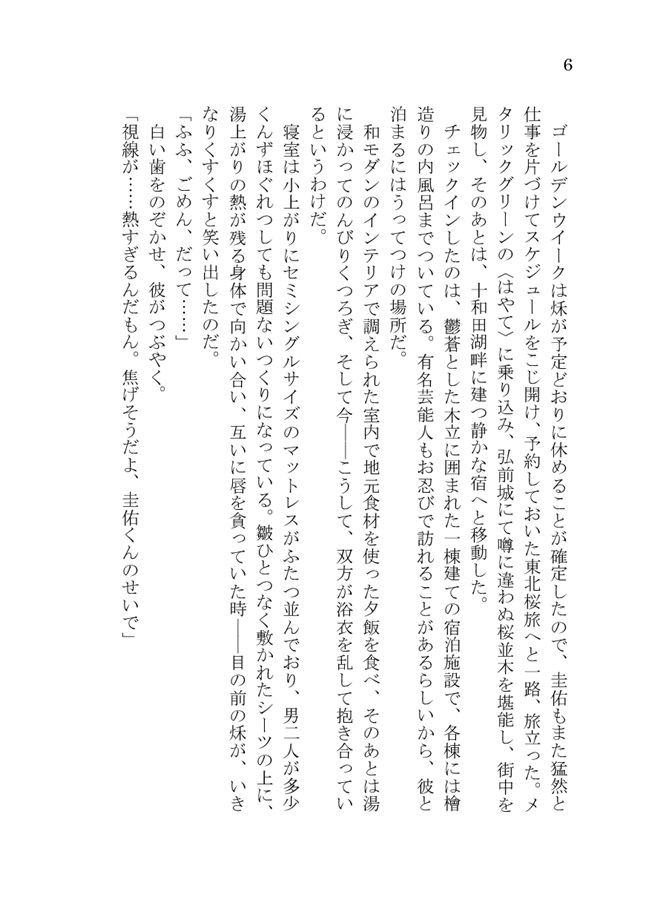 6
ゴールデンウイークは烁が予定どおりに休めることが確定したので、圭佑もまた猛然と
仕事を片づけてスケジュールをこじ開け、予約しておいた東北桜旅へと一路、旅立った。メ
タリックグリーンの〈はやて〉に乗り込み、弘前城にて噂に違わぬ桜並木を堪能し、街中を
見物し、そのあとは、十和田湖畔に建つ静かな宿へと移動した。
チェックインしたのは、鬱蒼とした木立に囲まれた一棟建ての宿泊施設で、各棟には檜
造りの内風呂までついている。有名芸能人もお忍びで訪れることがあるらしいから、彼と
泊まるにはうってつけの場所だ。
和モダンのインテリアで調えられた室内で地元食材を使った夕飯を食べ、そのあとは湯
に浸かってのんびりくつろぎ、そして今――こうして、双方が浴衣を乱して抱き合ってい
るというわけだ。
寝室は小上がりにセミシングルサイズのマットレスがふたつ並んでおり、男二人が多少
くんずほぐれつしても問題ないつくりになっている。皺ひとつなく敷かれたシーツの上に、
湯上がりの熱が残る身体で向かい合い、互いに唇を貪っていた時――目の前の烁が、いき
なりくすくすと笑い出したのだ。
「ふふ、ごめん、だって……」
白い歯をのぞかせ、彼がつぶやく。
「視線が……熱すぎるんだもん。焦げそうだよ、圭佑くんのせいで」